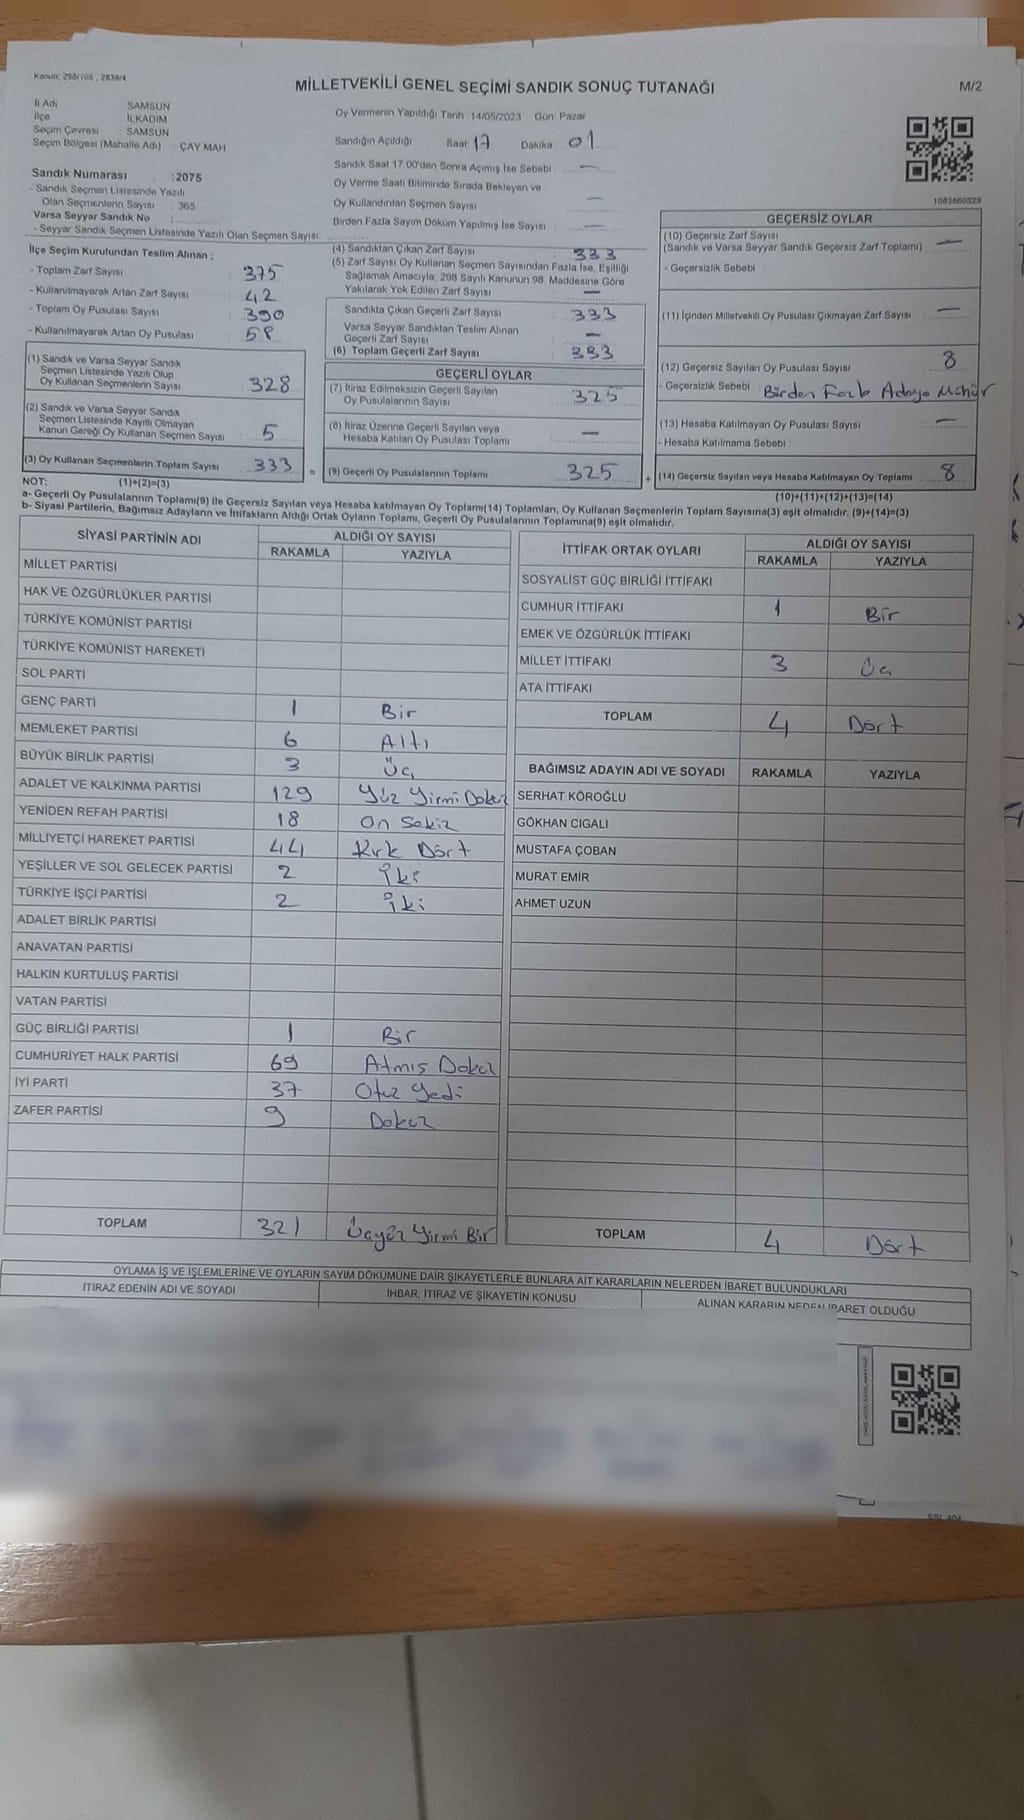 Kanun: 298/105 , 2839/4
MİLLETVEKİLİ GENEL SEÇİMİ SANDIK SONUÇ TUTANAĞI
M/2
İl Adı SAMSUN
İlçe İLKADIM
Seçim Çevresi : SAMSUN
Seçim Bölgesi (Mahalle Adı) : ÇAY MAH
Oy Vermenin Yapıldığı Tarih :14/05/2023 Gün: Pazar
Sandığın Açıldığı Saat 17 Dakika : 01
Sandık Saat 17:00'den Sonra Açımış İse Sebebi : —
Oy Verme Saati Bitiminde Sırada Bekleyen ve
Oy Kullandırılan Seçmen Sayısı : —
Birden Fazla Sayım Döküm Yapılmış İse Sayısı : —
1083860329
Sandık Numarası :2075
- Sandık Seçmen Listesinde Yazılı
Olan Seçmenlerin Sayısı : 365
Varsa Seyyar Sandık No :
- Seyyar Sandık Seçmen Listesinde Yazılı Olan Seçmen Sayısı:
İlçe Seçim Kurulundan Teslim Alınan :
- Toplam Zarf Sayısı : 375
- Kullanılmayarak Artan Zarf Sayısı : 42
- Toplam Oy Pusulası Sayısı : 390
- Kullanılmayarak Artan Oy Pusulası : 58
(1) Sandık ve Varsa Seyyar Sandık
Seçmen Listesinde Yazılı Olup
Oy Kullanan Seçmenlerin Sayısı : 328
(2) Sandık ve Varsa Seyyar Sandık
Seçmen Listesinde Kayıtlı Olmayan
Kanun Gereği Oy Kullanan Seçmen Sayısı : 5
(3) Oy Kullanan Seçmenlerin Toplam Sayısı : 333 =
(4) Sandıktan Çıkan Zarf Sayısı : 333
(5) Zarf Sayısı Oy Kullanan Seçmen Sayısından Fazla İse, Eşitliği
Sağlamak Amacıyla, 298 Sayılı Kanunun 98. Maddesine Göre
Yakılarak Yok Edilen Zarf Sayısı : —
Sandıkla Çıkan Geçerli Zarf Sayısı : 333
Varsa Seyyar Sandıktan Teslim Alınan
Geçerli Zarf Sayısı : —
(6) Toplam Geçerli Zarf Sayısı : 333
GEÇERLİ OYLAR
(7) İtiraz Edilmeksizin Geçerli Sayılan
Oy Pusulalarının Sayısı : 325
(8) İtiraz Üzerine Geçerli Sayılan veya
Hesaba Katılan Oy Pusulası Toplamı : —
(9) Geçerli Oy Pusulalarının Toplamı : 325 +
GEÇERSİZ OYLAR
(10) Geçersiz Zarf Sayısı
(Sandık ve Varsa Seyyar Sandık Geçersiz Zarf Toplamı) : —
- Geçersizlik Sebebi :
(11) İçinden Milletvekili Oy Pusulası Çıkmayan Zarf Sayısı : —
(12) Geçersiz Sayılan Oy Pusulası Sayısı : 8
- Geçersizlik Sebebi : Birden Fazla Adaya Mühür
(13) Hesaba Katılmayan Oy Pusulası Sayısı : —
- Hesaba Katılmama Sebebi :
(14) Geçersiz Sayılan veya Hesaba Katılmayan Oy Toplamı : 8
NOT: (1)+(2)=(3)
(10)+(11)+(12)+(13)=(14)
a- Geçerli Oy Pusulalarının Toplamı(9) ile Geçersiz Sayılan veya Hesaba katılmayan Oy Toplamı(14) Toplamları, Oy Kullanan Seçmenlerin Toplam Sayısına(3) eşit olmalıdır. (9)+(14)=(3)
b- Siyasi Partilerin, Bağımsız Adayların ve İttifakların Aldığı Ortak Oyların Toplamı, Geçerli Oy Pusulalarının Toplamına(9) eşit olmalıdır.
SİYASİ PARTİNİN ADI ALDIĞI OY SAYISI
RAKAMLA YAZIYLA
MİLLET PARTİSİ
HAK VE ÖZGÜRLÜKLER PARTİSİ
TÜRKİYE KOMÜNİST PARTİSİ
TÜRKİYE KOMÜNİST HAREKETİ
SOL PARTİ
GENÇ PARTİ 1 Bir
MEMLEKET PARTİSİ 6 Altı
BÜYÜK BİRLİK PARTİSİ 3 Üç
ADALET VE KALKINMA PARTİSİ 129 Yüz Yirmi Dokuz
YENİDEN REFAH PARTİSİ 18 On Sekiz
MİLLİYETÇİ HAREKET PARTİSİ 44 Kırk Dört
YEŞİLLER VE SOL GELECEK PARTİSİ 2 İki
TÜRKİYE İŞÇİ PARTİSİ 2 İki
ADALET BİRLİK PARTİSİ
ANAVATAN PARTİSİ
HALKIN KURTULUŞ PARTİSİ
VATAN PARTİSİ
GÜÇ BİRLİĞİ PARTİSİ 1 Bir
CUMHURİYET HALK PARTİSİ 69 Atmış Dokuz
İYİ PARTİ 37 Otuz Yedi
ZAFER PARTİSİ 9 Dokuz
TOPLAM 321 Üçyüz Yirmi Bir
İTTİFAK ORTAK OYLARI ALDIĞI OY SAYISI
RAKAMLA YAZIYLA
SOSYALİST GÜÇ BİRLİĞİ İTTİFAKI
CUMHUR İTTİFAKI 1 Bir
EMEK VE ÖZGÜRLÜK İTTİFAKI
MİLLET İTTİFAKI 3 Üç
ATA İTTİFAKI
TOPLAM 4 Dört
BAĞIMSIZ ADAYIN ADI VE SOYADI RAKAMLA YAZIYLA
SERHAT KÖROĞLU
GÖKHAN CIGALI
MUSTAFA ÇOBAN
MURAT EMİR
AHMET UZUN
TOPLAM 4 Dört
OYLAMA İŞ VE İŞLEMLERİNE VE OYLARIN SAYIM DÖKÜMÜNE DAİR ŞİKAYETLERLE BUNLARA AİT KARARLARIN NELERDEN İBARET BULUNDUKLARI
İTİRAZ EDENİN ADI VE SOYADI İHBAR, İTİRAZ VE ŞİKAYETİN KONUSU ALINAN KARARIN NEDEN İBARET OLDUĞU